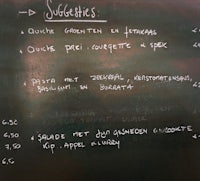 → Suggesties:
• Quiche groenten en fetakaas
• Quiche prei, courgette & spek
• Pasta met zeekraal, kerstomatensaus,
basilicum en burrata
6.50
6,50 • Salade met fijn gesneden
7,50 kip, appel & curry